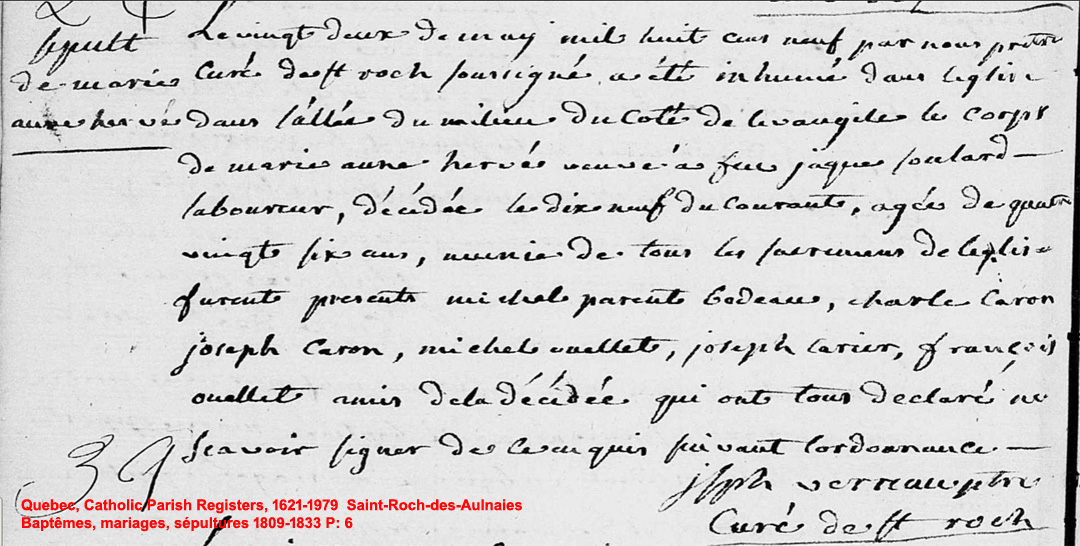 Sépult
de marie
anne hervé
Le vingt deux de may mil huit cens neuf par nous prêtre
Curé de st roch soussigné, a été inhumé dans l'eglise
dans l'allée du milieu du coté de levangile le corps
de marie anne hervé veuve à feu jaque soulard
laboureur, décédée le dix neuf du courant, agée de quatre
vingt six ans, munie de tous les sacremens de leglise
furent presents michel parent bodeau, charle Caron
joseph Caron, michel ouellet, joseph Carier, françois
ouellet amis de la décédée qui ont tous declaré ne
scavoir signer de ce enquis suivant lordonnance
jsph verreau ptre
Curé de st roch
39
Quebec, Catholic Parish Registers, 1621-1979 Saint-Roch-des-Aulnaies
Baptêmes, mariages, sépultures 1809-1833 P: 6